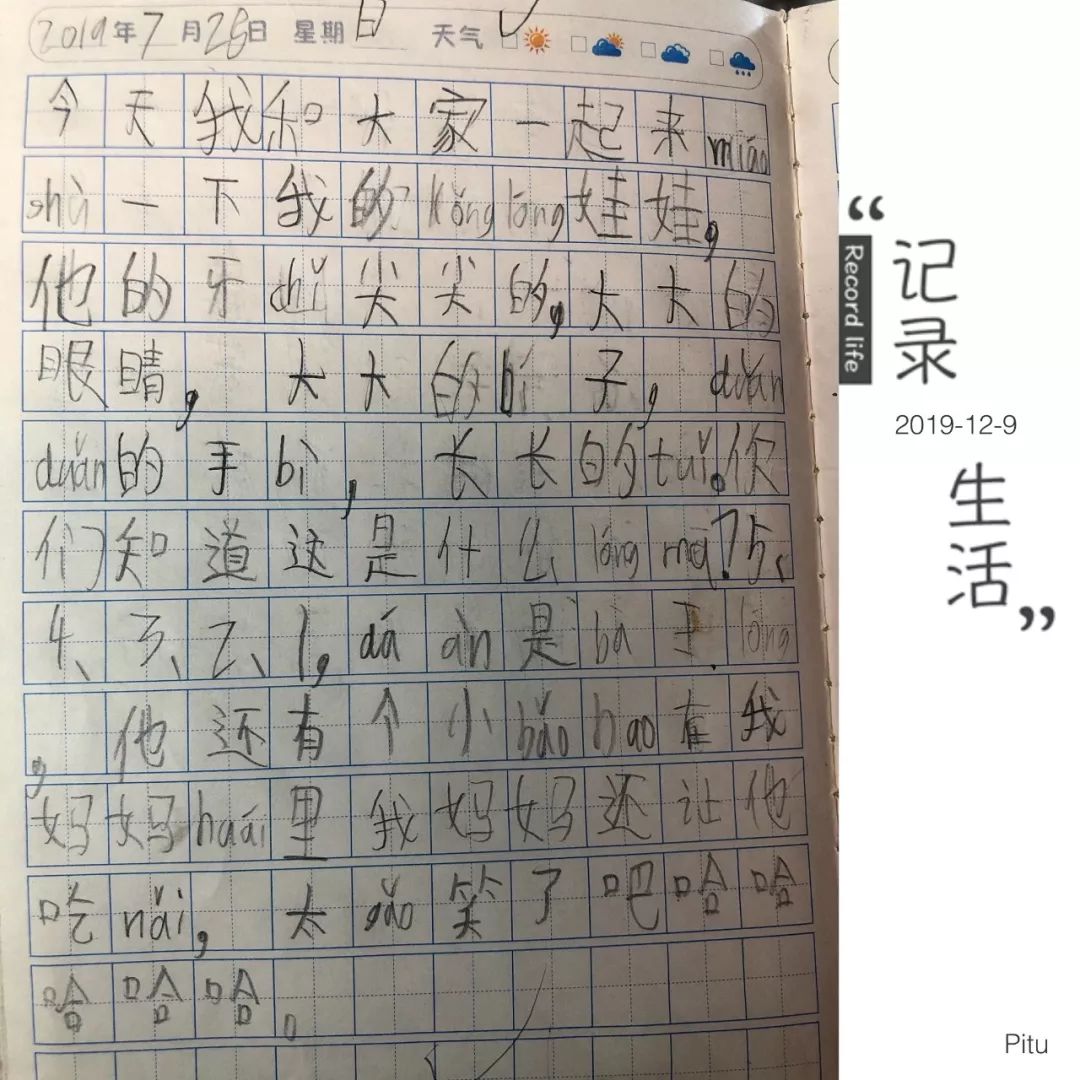 2019年7月28日 星期日 天气
今天我和大家一起来miáo
shù一下我的kǒnglóng娃娃,
他的牙chǐ尖尖的,大大的
眼睛,大大的bí子,duǎn
duǎn的手bì,长长的tuǐ。你
们知道这是什么lóng mā?5、
4、3、2、1,dá àn是bà王lóng
,他还有个小bǎobao在我
妈妈huái里我妈妈还让他
吃nǎi,太gǎo笑了吧哈哈
哈哈哈。
“
记录
Record life
2019-12-9
生活
”
Pitu